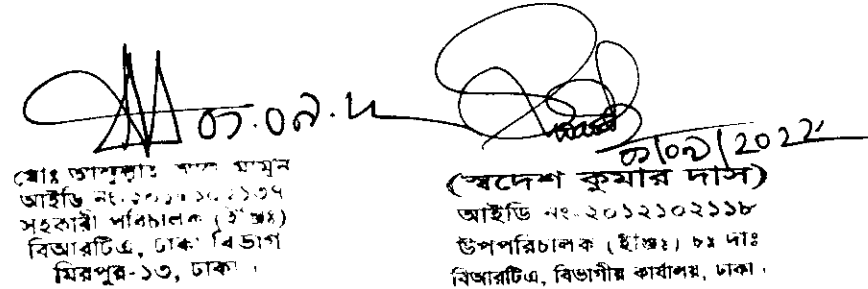 ০৭.০৯.২২
মোঃ মামুন
আইডি নং-
সহকারী পরিচালক (ইঞ্জিঃ)
বিআরটিএ, ঢাকা বিভাগ
মিরপুর-১৩, ঢাকা।
/০৯/2022
(স্বদেশ কুমার দাস)
আইডি নং-২০১২১০২১১৮
উপপরিচালক (ইঞ্জিঃ) চঃ দাঃ
বিআরটিএ, বিভাগীয় কার্যালয়, ঢাকা।